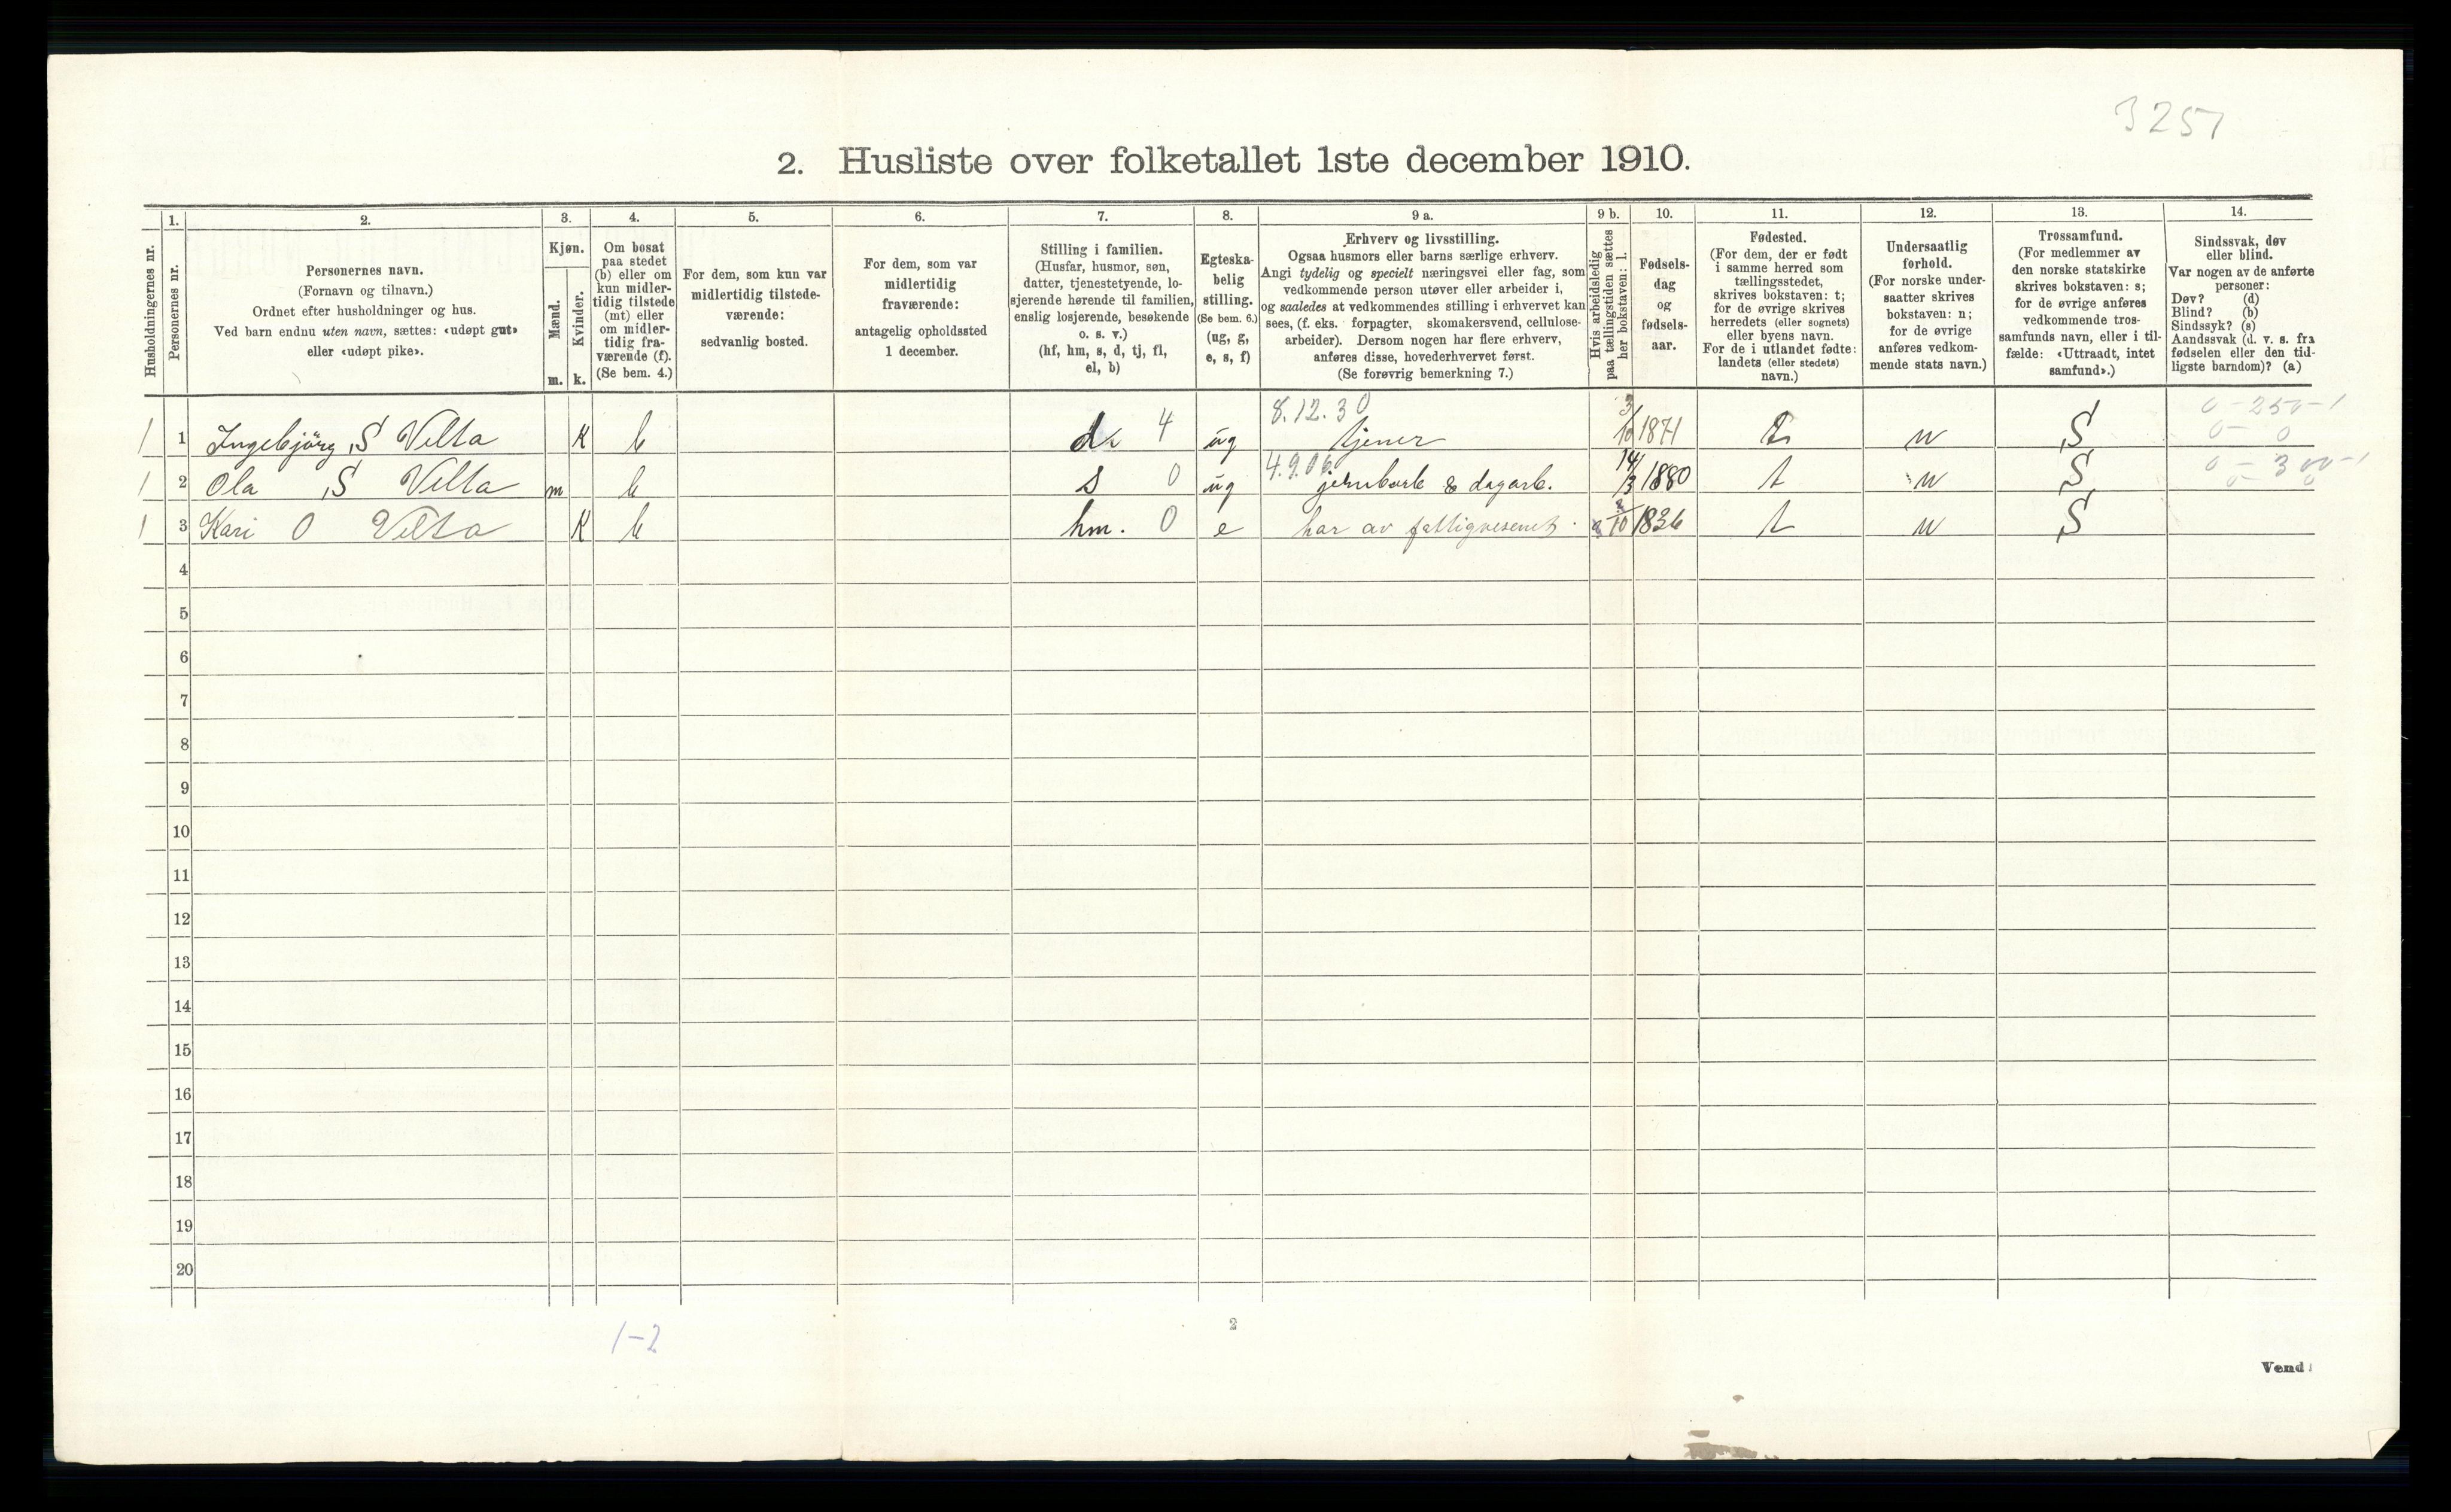 3257
2. Husliste over folketallet 1ste december 1910.
Husholdningernes nr.
1.
Personernes nr.
2.
Personernes navn.
(Fornavn og tilnavn.)
Ordnet efter husholdninger og hus.
Ved barn endnu uten navn, sættes: «udøpt gut»
eller «udøpt pike».
3.
Kjøn.
Mænd.
m.
Kvinder.
k.
4.
Om bosat
paa stedet
(b) eller om
kun midler-
tidig tilstede
(mt) eller
om midler-
tidig fra-
værende (f).
(Se bem. 4.)
5.
For dem, som kun var
midlertidig tilstede-
værende:
sedvanlig bosted.
6.
For dem, som var
midlertidig
fraværende:
antagelig opholdssted
1 december.
7.
Stilling i familien.
(Husfar, husmor, søn,
datter, tjenestetyende, lo-
sjerende hørende til familien,
enslig losjerende, besøkende
o. s. v.)
(hf, hm, s, d, tj, fl,
el, b)
8.
Egteska-
belig
stilling.
(Se bem. 6.)
(ug, g,
e, s, f)
9 a.
Erhverv og livsstilling.
Ogsaa husmors eller barns særlige erhverv.
Angi tydelig og specielt næringsvei eller fag, som
vedkommende person utøver eller arbeider i,
og saaledes at vedkommendes stilling i erhvervet kan
sees, (f. eks. forpagter, skomakersvend, cellulose-
arbeider). Dersom nogen har flere erhverv,
anføres disse, hovederhvervet først.
(Se forøvrig bemerkning 7.)
9 b.
Hvis arbeidsledig
paa tællingstiden sættes
her bokstaven: l.
10.
Fødsels-
dag
og
fødsels-
aar.
11.
Fødested.
(For dem, der er født
i samme herred som
tællingsstedet,
skrives bokstaven: t;
for de øvrige skrives
herredets (eller sognets)
eller byens navn.
For de i utlandet fødte:
landets (eller stedets)
navn.)
12.
Undersaatlig
forhold.
(For norske under-
saatter skrives
bokstaven: n;
for de øvrige
anføres vedkom-
mende stats navn.)
13.
Trossamfund.
(For medlemmer av
den norske statskirke
skrives bokstaven: s;
for de øvrige anføres
vedkommende tros-
samfunds navn, eller i til-
fælde: «Uttraadt, intet
samfund».)
14.
Sindssvak, døv
eller blind.
Var nogen av de anførte
personer:
Døv? (d)
Blind? (b)
Sindssyk? (s)
Aandssvak (d. v. s. fra
fødselen eller den tid-
ligste barndom)? (a)
8.12.30
0-250-1
1 1 Ingebjörg S Villa K b d. 4 ug tjener 3/10 1871 t n S 0-0
4.9.06
0-300-1
1 2 Ola S Villa m b s 0 ug jernbarb & dagarb. 14/3 1880 t n S 0-0
1 3 Kari O Villa K b hm. 0 e har av fattigvesenet 10 1836 t n S
4
5
6
7
8
9
10
11
12
13
14
15
16
17
18
19
20
1-2
2
Vend!